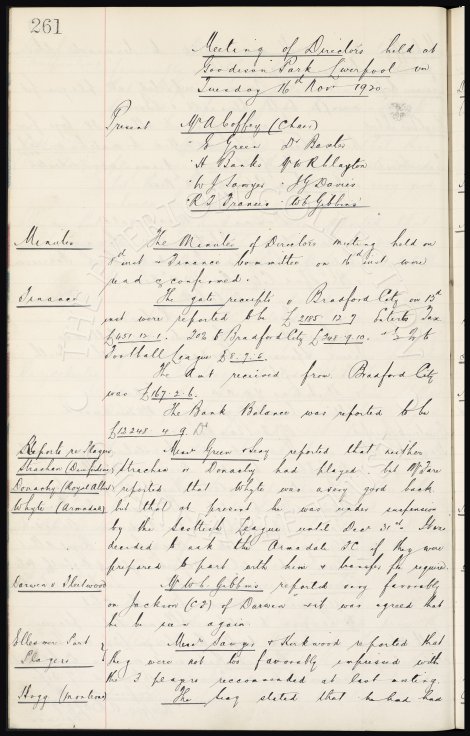 261
Meeting of Directors held at
Goodison Park Liverpool on
Tuesday 16th Novr 1920
Present Mr A Coffey (Chair)
" E Green Dr Baxter
" H Banks Mr W R Clayton
" W J Sawyer " J G Davies
" R T Francis " W C Gibbins
Minutes The Minutes of Directors meeting held on
inst & Finance Committee on 16th inst were
read & confirmed.
Finance The gate receipts v Bradford City on 13th
inst were reported to be £2185.13.9 Entertt Tax
£451.13.1. 20% to Bradford City £348.9.10. & ½% to
Football League £8.9.6.
The amt received from Bradford City
was £167.2.6.
The Bank Balance was reported to be
£13245 4 9 Dr
Reports re Players Messrs Green & Secy reported that neither
Strachan (Dunfermline) Strachan or Donachy had played but Mr
Donachy (Royal Albert) reported that Whyte was a very good back
Whyte (Armadale) but that at present he was under suspension
by the Scottish League until Decr 31st. It was
decided to ask the Armadale FC if they were
prepared to part with him & transfer fee required
Darwen v Fleetwood Mr W C Gibbins reported very favorably
on Jackson (C.F.) of Darwen & it was agreed that
he be seen again.
Ellesmere Port Messrs Sawyer & Kirkwood reported that
Players they were not too favorably impressed with
the 3 players reccomended at last meeting.
Hogg (Montrose) The Secy stated that he had had